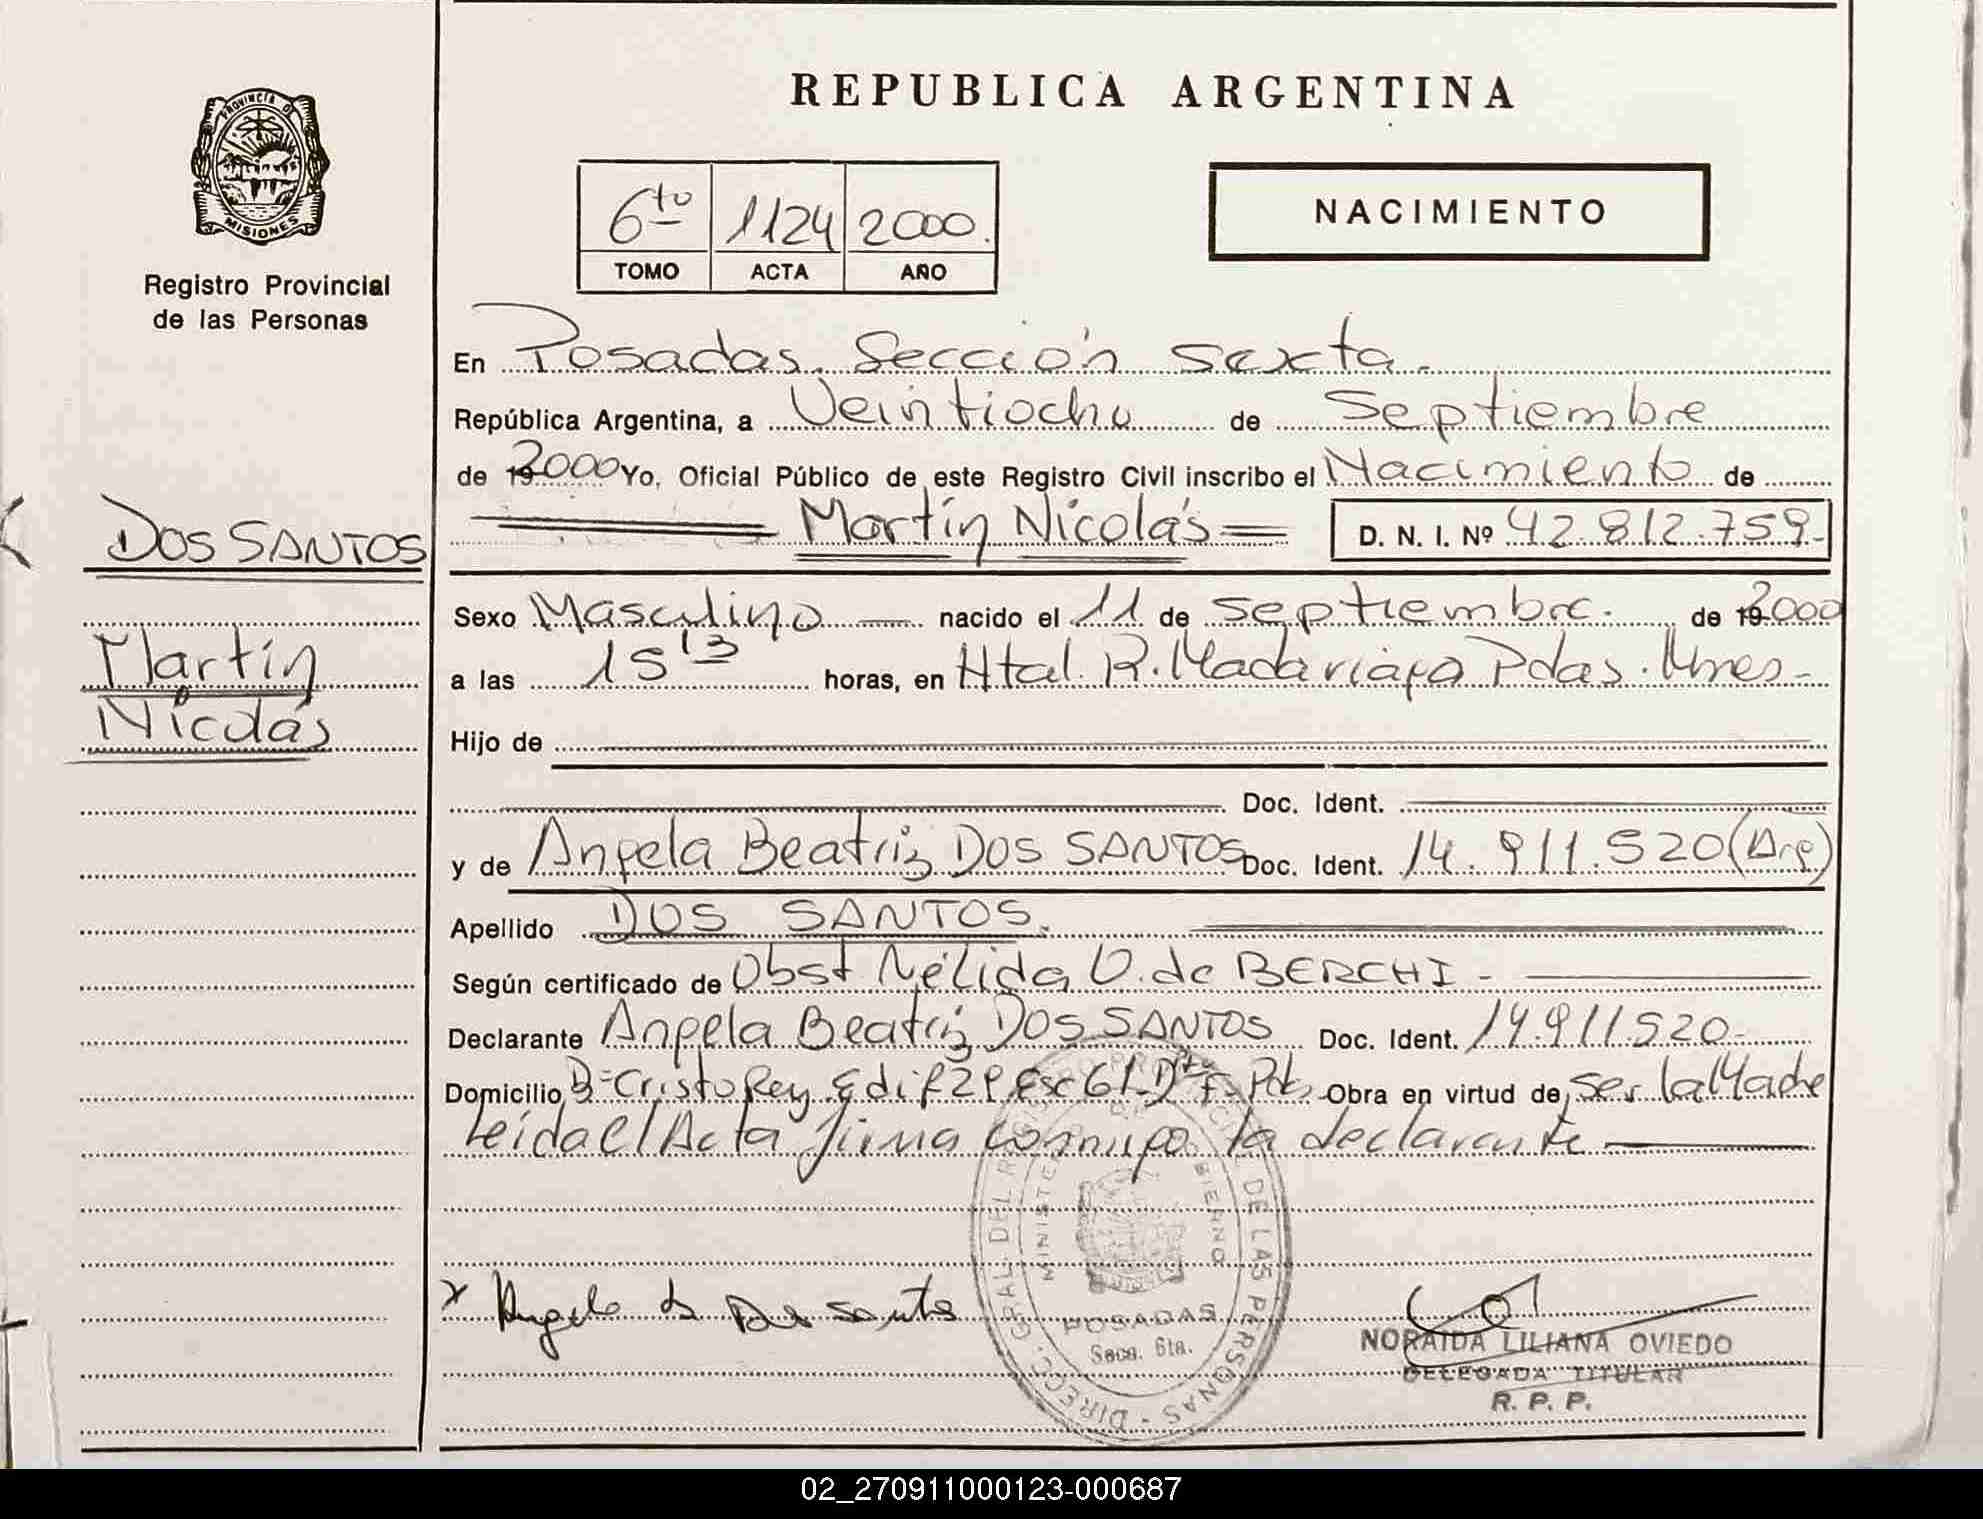 PROVINCIA DE
MISIONES
Registro Provincial
de las Personas
DOS SANTOS
Martín
Nicolás
REPUBLICA ARGENTINA
6to 1124 2000.
TOMO ACTA AÑO
NACIMIENTO
En Posadas. Sección Sexta.
República Argentina, a Veintiocho de Septiembre
de 2000 Yo, Oficial Público de este Registro Civil inscribo el Nacimiento de
Martín Nicolás D. N. I. Nº 42.812.759-
Sexo Masculino nacido el 11 de septiembre. de 2000
a las 15 13 horas, en Htal. R. Madariaga Pdas. Mnes-
Hijo de
Doc. Ident.
y de Angela Beatriz DOS SANTOS Doc. Ident. 14.911.520 (Arg)
Apellido DOS SANTOS.
Según certificado de Obst Nélida O. de BERCHI -
Declarante Angela Beatriz DOS SANTOS Doc. Ident. 14.911.520-
Domicilio Bº Cristo Rey Edif 29 Esc 61 Dto F Obra en virtud de ser la Madre
Leída el Acta firma conmigo la declarante
x Angela B Dos Santos
DIREC. GRAL. DEL REGISTRO PROVINCIAL DE LAS PERSONAS
MINISTERIO DE GOBIERNO
POSADAS
Secc. 6ta.
NORAIDA LILIANA OVIEDO
DELEGADA TITULAR
R. P. P.
02_270911000123-000687